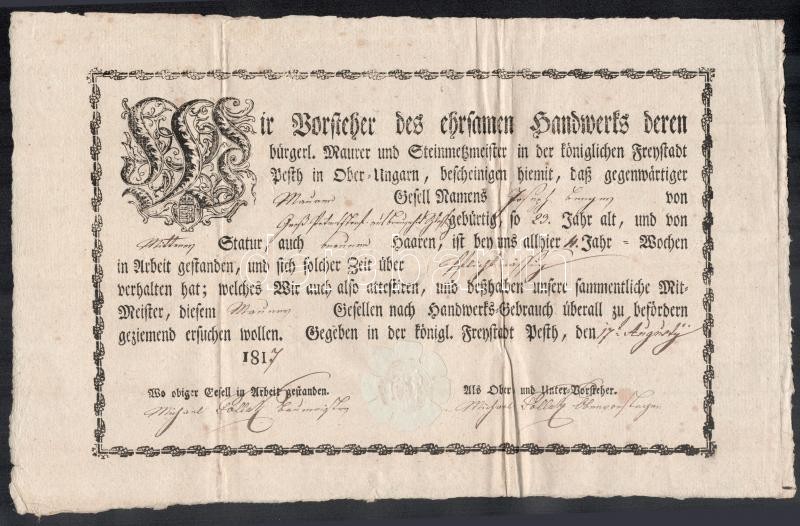 Wir Vorsteher des ehrsamen Handwerks deren
bürgerl. Maurer und Steinmetzmeister in der königlichen Freystadt
Pesth in Ober-Ungarn, bescheinigen hiemit, daß gegenwärtiger
Maurer Gesell Namens Joseph von
gebürtig, so 23. Jahr alt, und von
Mittern Statur, auch braunen Haaren, ist bey uns allhier 4. Jahr = Wochen
in Arbeit gestanden, und sich solcher Zeit über
verhalten hat; welches Wir auch also attestiren, und deßhalben unsere sammentliche Mit-
Meister, diesem Maurer Gesellen nach Handwerks-Gebrauch überall zu befördern
geziemend ersuchen wollen. Gegeben in der königl. Freystadt Pesth, den 17. Augusty
1817
Wo obiger Gesell in Arbeit gestanden.
Michael Pollack Baumeister
Als Ober- und Unter-Vorsteher.
Michael Pollack Obervorsteher